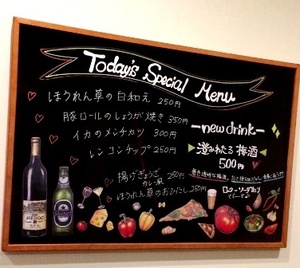 Today's Special Menu
ほうれん草の白和え 250円
豚ロールのしょうが焼き 350円
イカのメンチカツ 300円
レンコンチップ 250円
揚げぎょうざ 250円
カレー風
ほうれん草のおひたし 250円
-new drink-
澄みわたる梅酒
500円
ロック・ソーダ割り